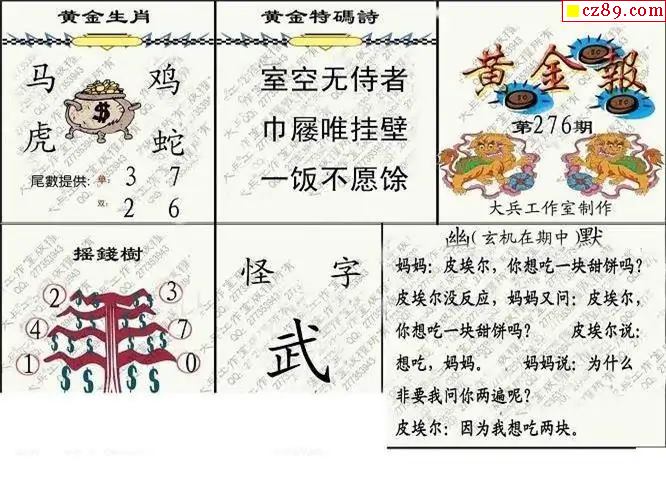 cz89.com
黄金生肖
马 鸡
虎 蛇
$
尾數提供: 单: 3 7
双: 2 6
黄金特碼詩
室空无侍者
巾屦唯挂壁
一饭不愿馀
黄金報
第276期
大兵工作室制作
摇錢樹
2 3
4 7
1 0
怪 字
武
幽(玄机在期中)默
妈妈：皮埃尔，你想吃一块甜饼吗？
皮埃尔没反应，妈妈又问：皮埃尔，
你想吃一块甜饼吗？ 皮埃尔说：
想吃，妈妈。 妈妈说：为什么
非要我问你两遍呢？
皮埃尔：因为我想吃两块。